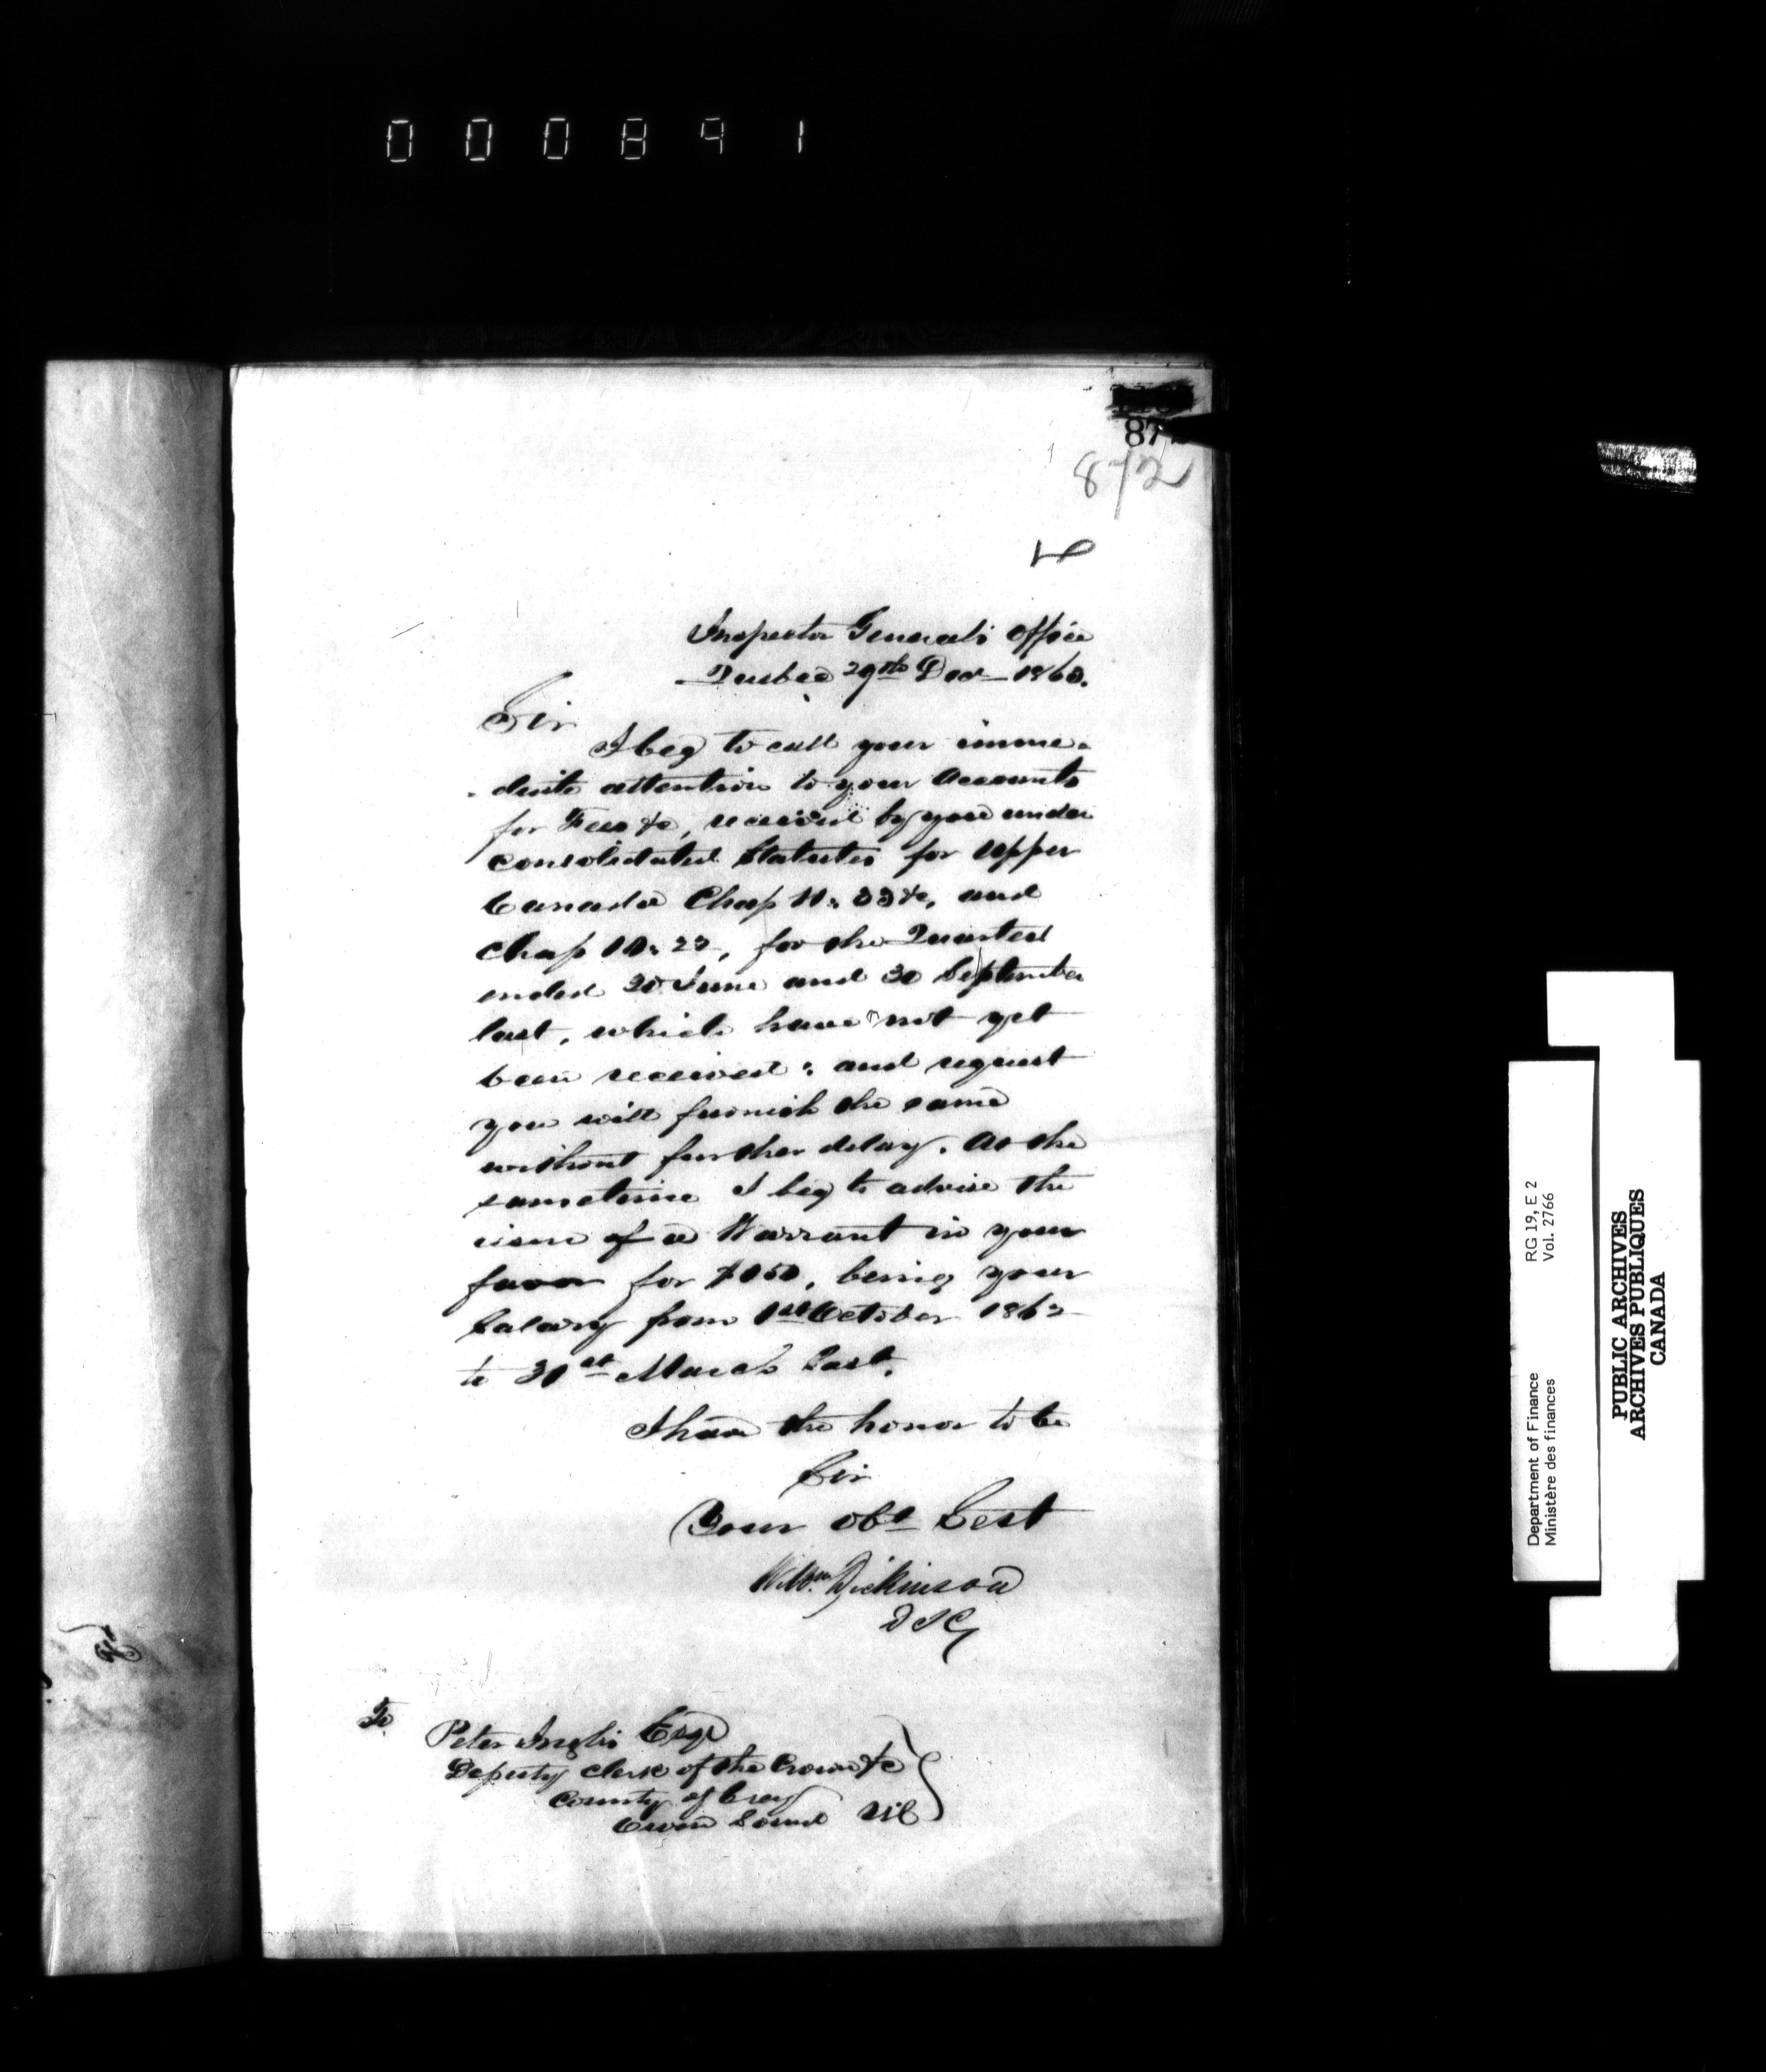 000891
872
Inspector General's Office
Quebec 29th Decr 1863.
Sir
I beg to call your imme-
-diate attention to your Accounts
for Fees &c, received by you under
Consolidated Statutes for Upper
Canada Chap 10: 33 &c, and
Chap 10: 23, for the Quarters
ended 30 June and 30 September
last, which have not yet
been received; and request
you will furnish the same
without further delay. At the
sametime I beg to advise the
issue of a Warrant in your
favor for being your
Salary from 1st October 1862
to 31st March last.
I have the honor to be
Sir
Your obt Servt
Dickinson
D I G
To
Peter Inglis Esqr
Deputy Clerk of the Crown &c
County of Grey
Owen Sound
Department of Finance
Ministère des finances
RG 19, E 2
Vol. 2766
PUBLIC ARCHIVES
ARCHIVES PUBLIQUES
CANADA